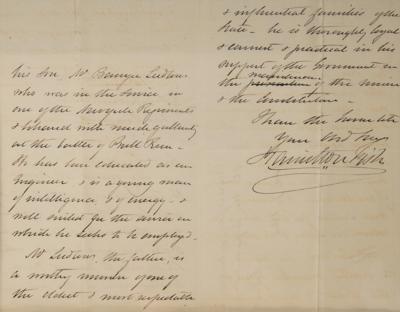 his Son, Mr Ludlow
who was in the service in
one of the Regiments
& behaved with much gallantry
at the battle of Bull Run —
He has been educated as an
Engineer & is a young man
of intelligence & of energy — &
well suited for the service in
which he seeks to be employed.
Mr Ludlow, the father, is
a worthy member of one of
the oldest & most respectable
& influential families of the
State — he is thoroughly loyal
& earnest & practical in his
support of the Government in
the maintenance of the union
& the Constitution —
I have the honor to be
Your Obd Svt
Hamilton Fish